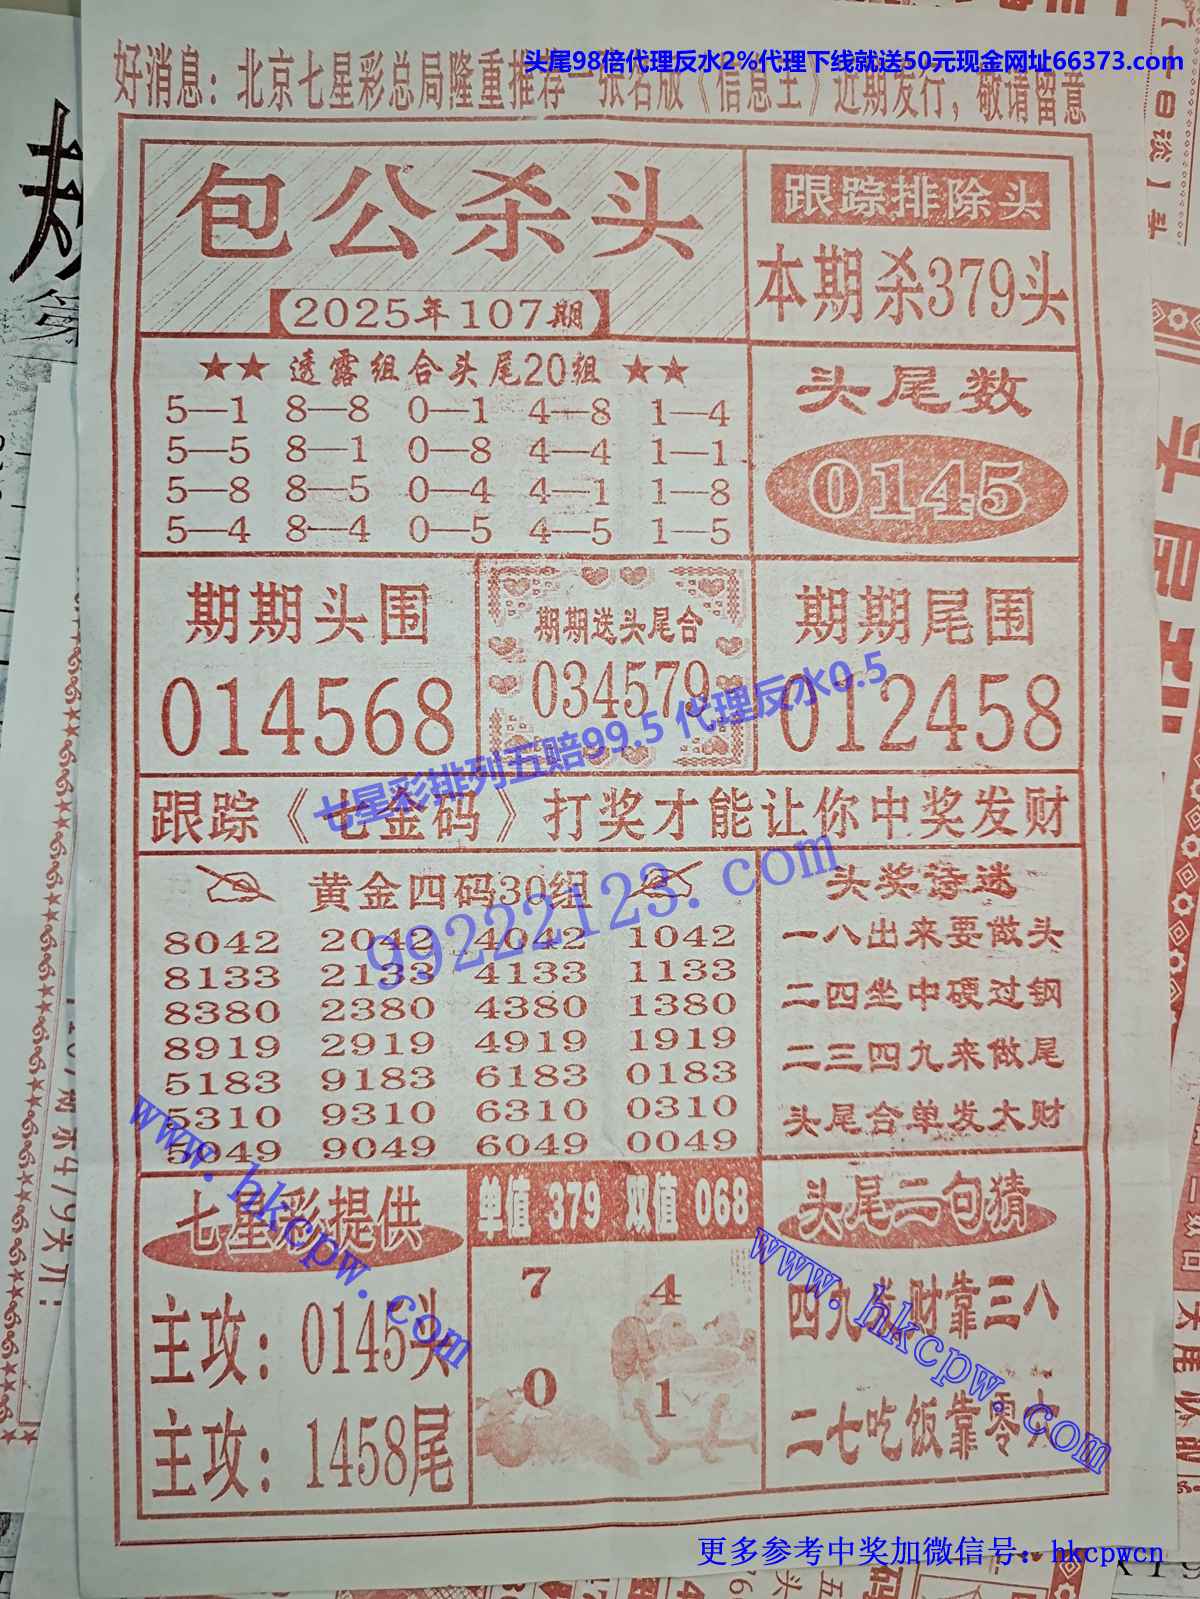 头尾98倍代理反水2%代理下线就送50元现金网址66373.com
好消息：北京七星彩总局隆重推荐一张名版《信息王》近期发行，敬请留意
包公杀头
2025年107期
跟踪排除头
本期杀379头
★★ 透露组合头尾20组 ★★
5—1 8—8 0—1 4—8 1—4
5—5 8—1 0—8 4—4 1—1
5—8 8—5 0—4 4—1 1—8
5—4 8—4 0—5 4—5 1—5
头尾数
0145
期期头围
014568
期期送头尾合
034579
期期尾围
012458
七星彩排列五赔99.5 代理反水0.5
跟踪《七金码》打奖才能让你中奖发财
99222123.com
黄金四码30组
8042 2042 4042 1042
8133 2133 4133 1133
8380 2380 4380 1380
8919 2919 4919 1919
5183 9183 6183 0183
5310 9310 6310 0310
5049 9049 6049 0049
头奖诗迷
一八出来要做头
二四坐中硬过钢
二三四九来做尾
头尾合单发大财
www.hkcpw.com
七星彩提供
主攻：0145头
主攻：1458尾
单值 379 双值 068
7 4
0 1
头尾二句猜
四九发财靠三八
二七吃饭靠零六
www.hkcpw.com
更多参考中奖加微信号：hkcpwcn